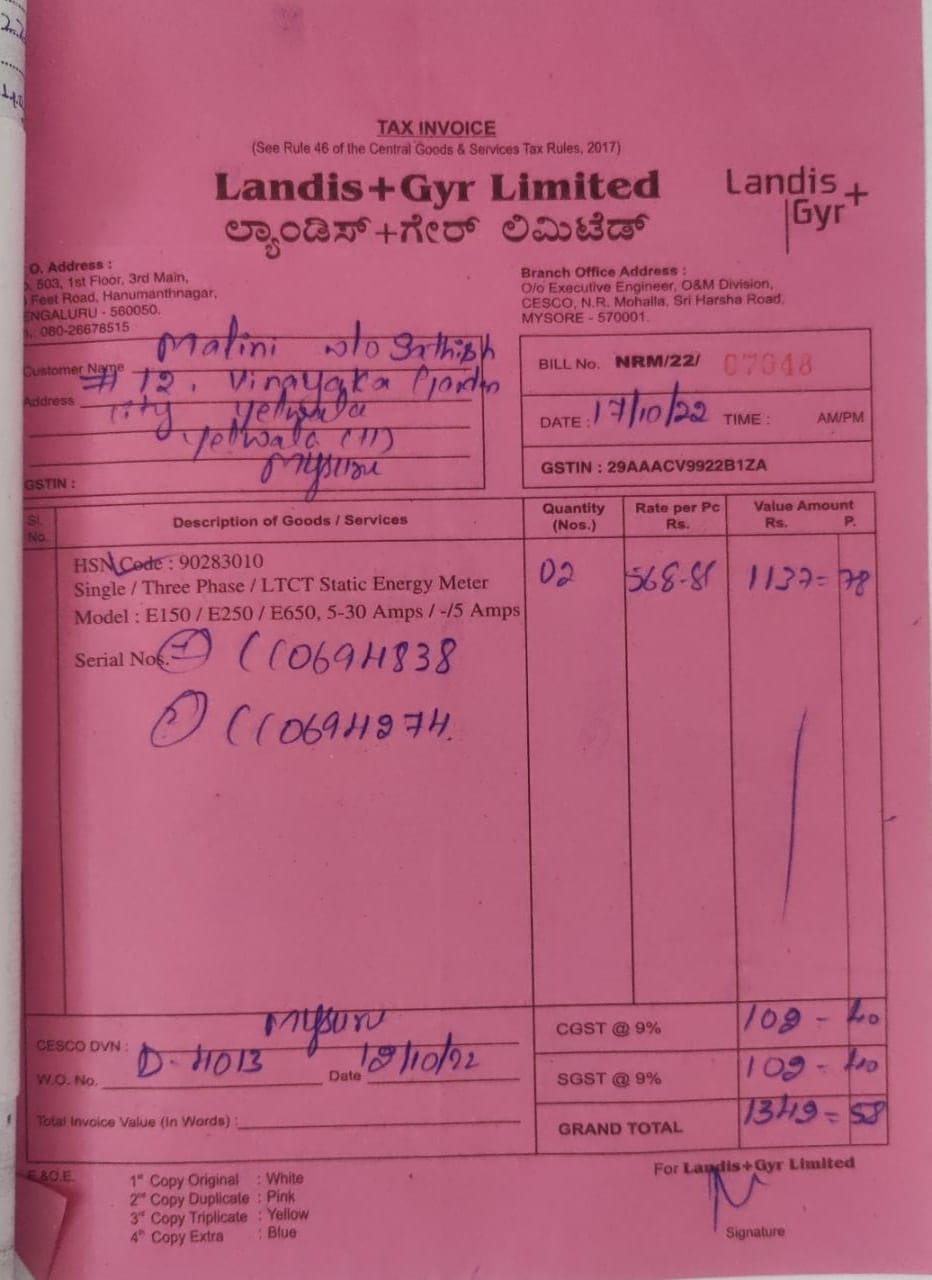 TAX INVOICE
(See Rule 46 of the Central Goods & Services Tax Rules, 2017)
Landis+Gyr Limited
ಲ್ಯಾಂಡಿಸ್+ಗೇರ್ ಲಿಮಿಟೆಡ್
Landis
Gyr+
O. Address :
503, 1st Floor, 3rd Main,
Feet Road, Hanumanthnagar,
ENGALURU - 560050.
080-26678515
Branch Office Address :
O/o Executive Engineer, O&M Division,
CESCO, N.R. Mohalla, Sri Harsha Road,
MYSORE - 570001.
Customer Name Malini w/o Sathish
Address # 12, Vinayaka Garden
City Yelwala
Yelwala (H)
Mysuru
GSTIN :
BILL No. NRM/22/ 07048
DATE : 17/10/22 TIME : AM/PM
GSTIN : 29AAACV9922B1ZA
Sl. No. Description of Goods / Services Quantity (Nos.) Rate per Pc Rs. Value Amount Rs. P.
HSN Code : 90283010
Single / Three Phase / LTCT Static Energy Meter 02 568-8 1137=78
Model : E150 / E250 / E650, 5-30 Amps / -/5 Amps
Serial Nos. 1 ((0694838
2 ((0694274.
Mysuru
CESCO DVN :
W.O. No. D-4013 Date 18/10/22
Total Invoice Value (In Words) :
CGST @ 9% 102 - 40
SGST @ 9% 102 - 40
GRAND TOTAL 1342=58
E.&O.E.
1st Copy Original : White
2nd Copy Duplicate : Pink
3rd Copy Triplicate : Yellow
4th Copy Extra : Blue
For Landis+Gyr Limited
Signature